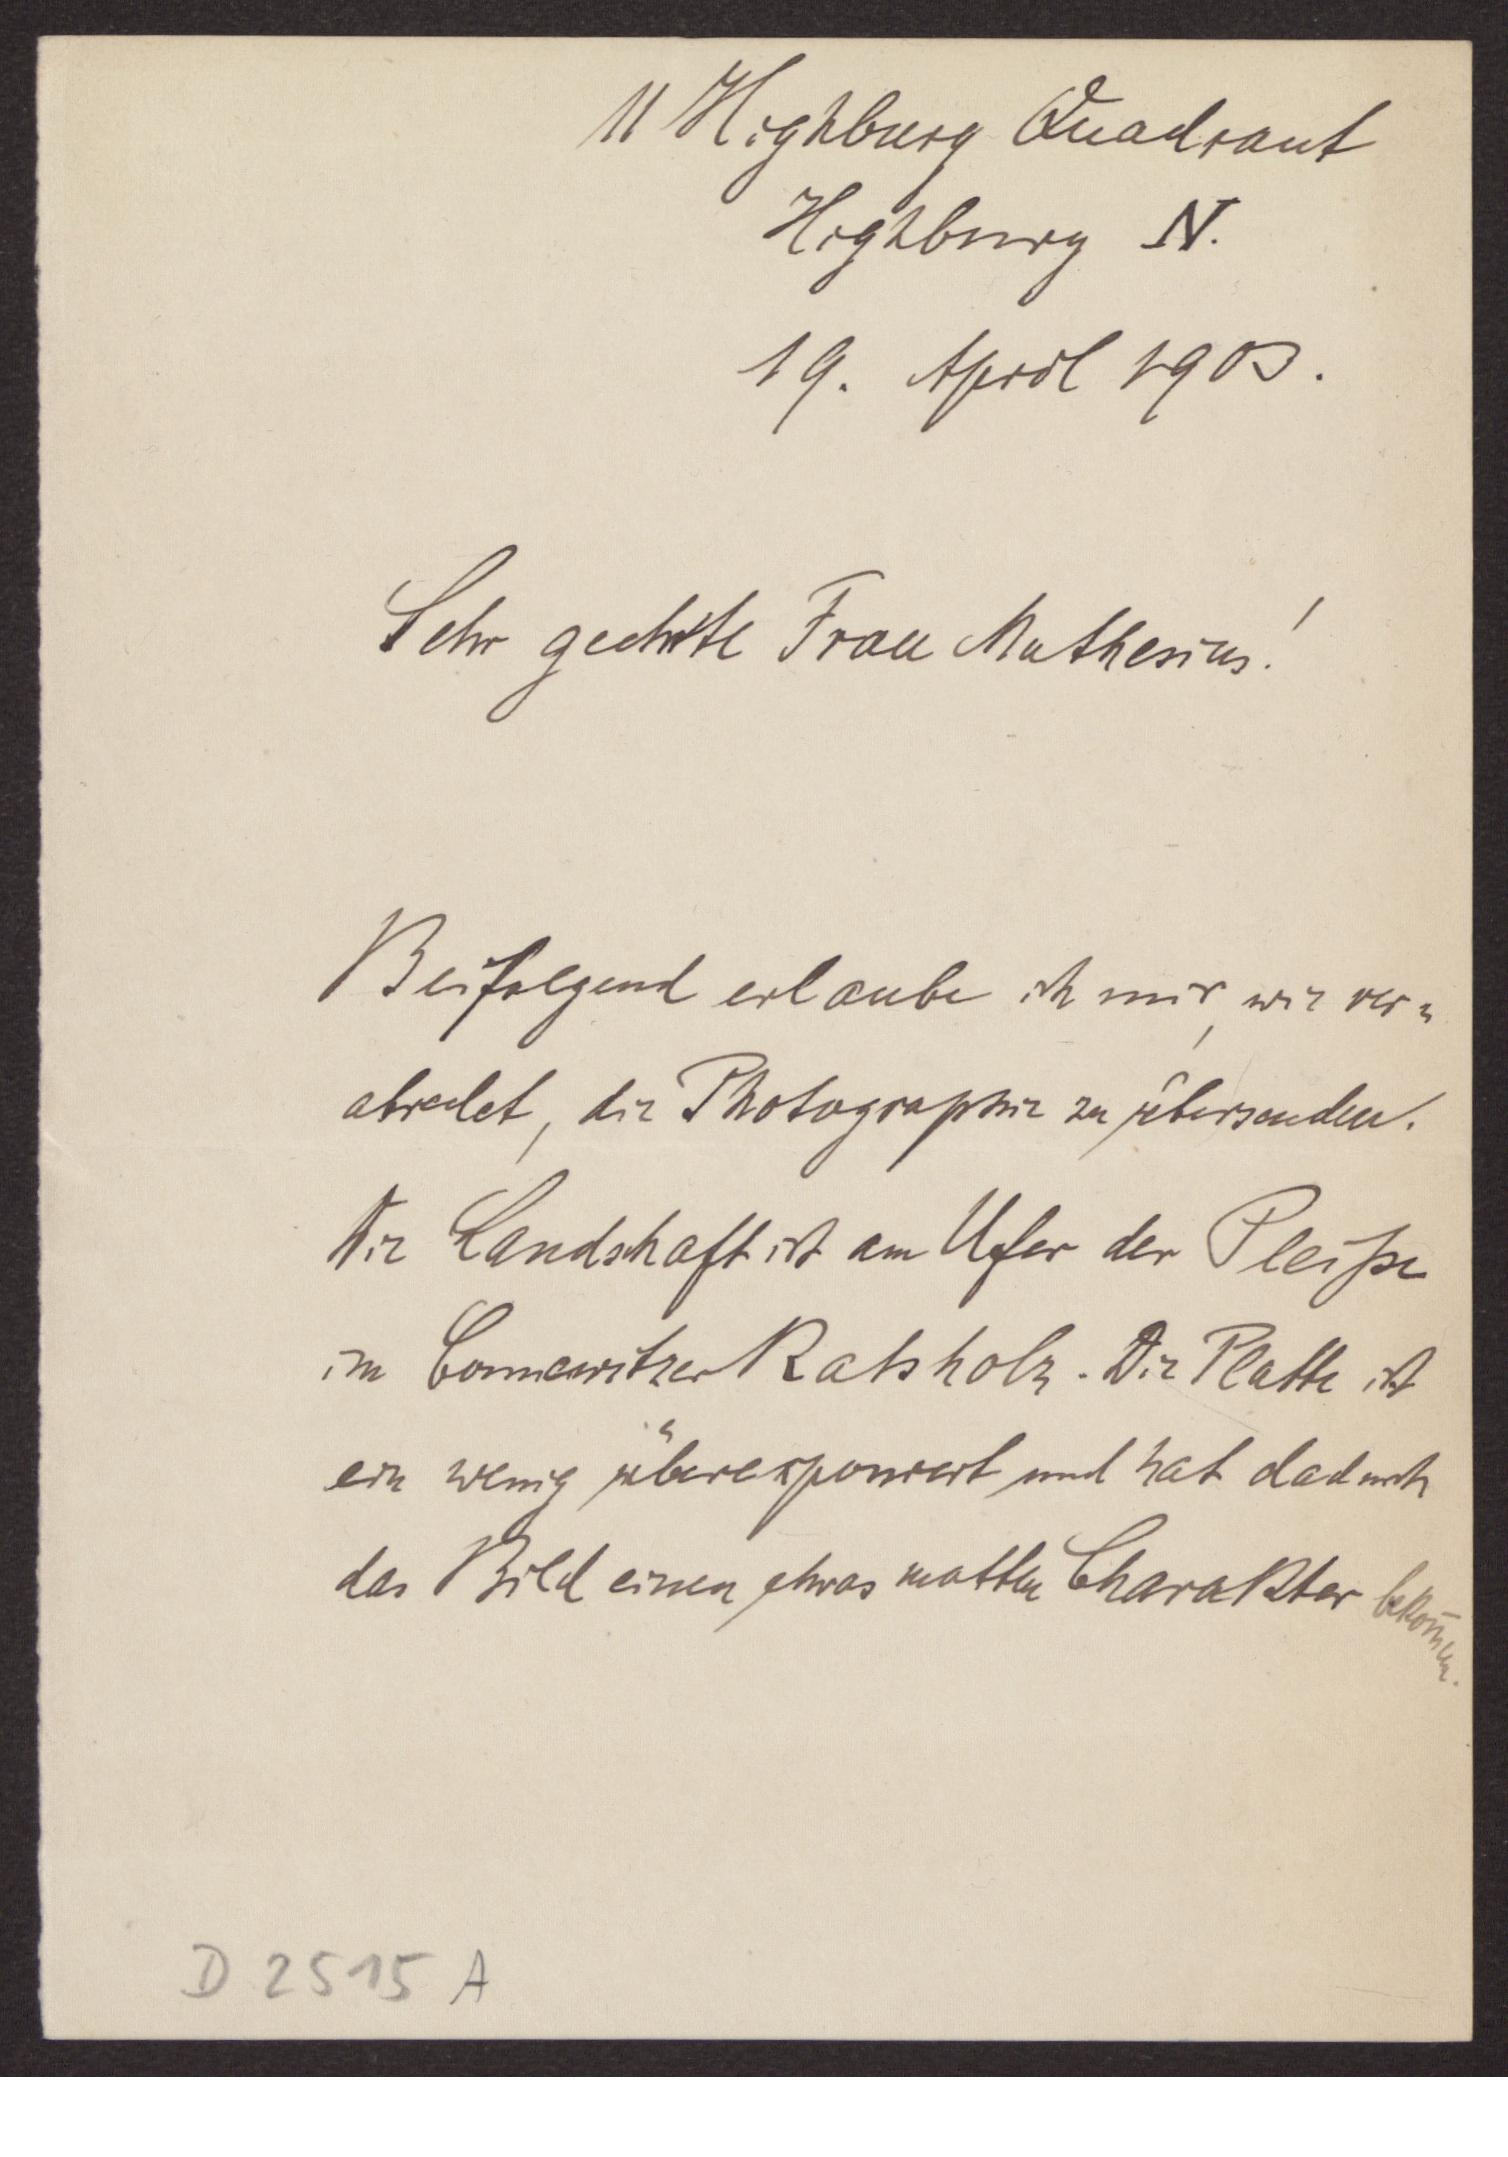 11 Highbury Quadrant
Highbury N.
19. April 1903.
Sehr geehrte Frau Muthesius!
Beifolgend erlaube ich mir, wie ver=
abredet, die Photographie zu übersenden.
Die Landschaft ist am Ufer der Pleiße
im Connewitzer Ratsholz. Die Platte ist
ein wenig überexponiert und hat dadurch
das Bild einen etwas matten Charakter bekom̅en.
D 2515 A